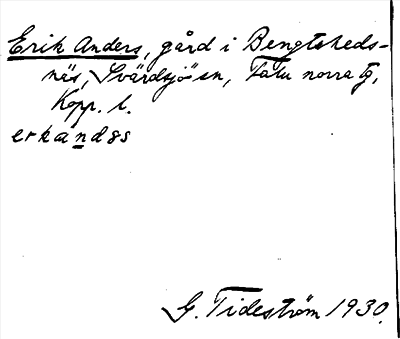 Erik Anders, gård i Bengtsheds-
näs, Svärdsjö sn, Falu norra tg,
Kopp. l.
erkandas
G. Tideström 1930.